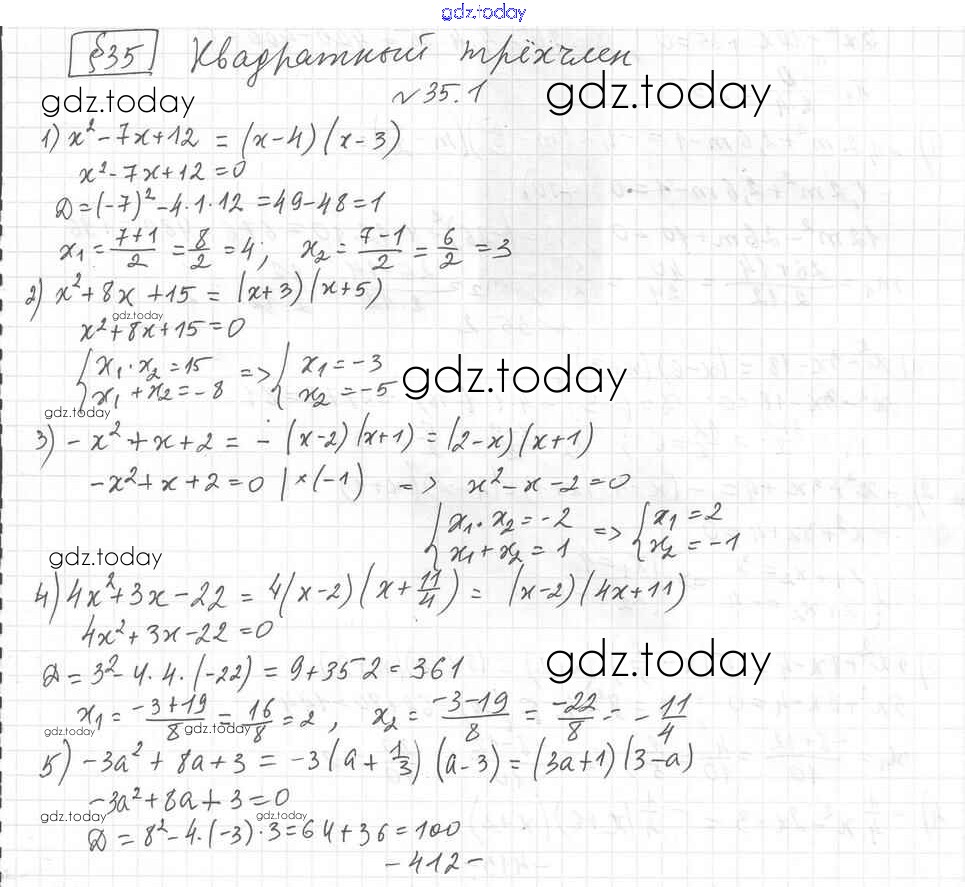 gdz.today
§35 Квадратный трёхчлен
gdz.today №35.1 gdz.today
1) x² - 7x + 12 = (x - 4)(x - 3)
x² - 7x + 12 = 0
Д = (-7)² - 4·1·12 = 49 - 48 = 1
x₁ = (7+1)/2 = 8/2 = 4; x₂ = (7-1)/2 = 6/2 = 3
2) x² + 8x + 15 = (x+3)(x+5)
gdz.today
x² + 8x + 15 = 0
{x₁·x₂ = 15 => {x₁ = -3
x₁ + x₂ = -8 x₂ = -5
gdz.today
gdz.today
3) -x² + x + 2 = -(x-2)(x+1) = (2-x)(x+1)
-x² + x + 2 = 0 |×(-1) => x² - x - 2 = 0
{x₁·x₂ = -2 => {x₁ = 2
x₁ + x₂ = 1 x₂ = -1
gdz.today
4) 4x² + 3x - 22 = 4(x-2)(x + 11/4) = (x-2)(4x+11)
4x² + 3x - 22 = 0
gdz.today
Д = 3² - 4·4·(-22) = 9 + 352 = 361
x₁ = (-3+19)/8 = 16/8 = 2, x₂ = (-3-19)/8 = -22/8 = -11/4
gdz.today gdz.today
5) -3a² + 8a + 3 = -3(a + 1/3)(a-3) = (3a+1)(3-a)
-3a² + 8a + 3 = 0
gdz.today gdz.today
Д = 8² - 4·(-3)·3 = 64 + 36 = 100
- 412 -